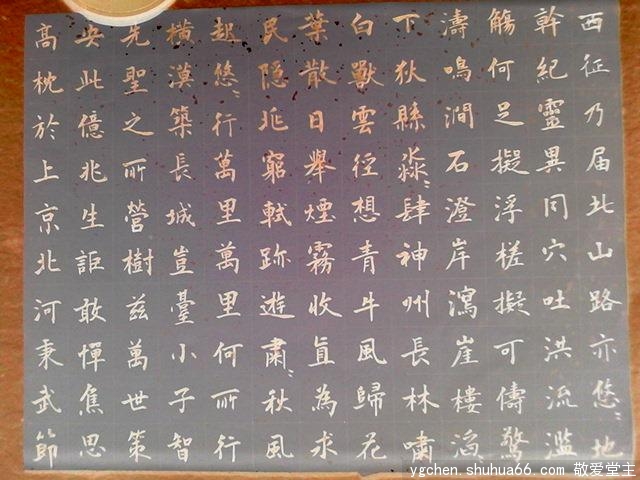 西征乃届北山路亦悠々地
幹紀靈異同穴吐洪流濫
觴何足擬浮槎擬可儔驚
濤鳴澗石澄岸瀉崖樓滔々
下狄縣淼々肆神州長林嘯
白獸雲徑想青牛風歸花
葉散日舉煙霧收直為求
民隱非窮軾跡遊肅々秋風
起悠々行萬里萬里何所行
橫漠築長城豈臺小子智
先聖之所營樹茲萬世策
安此億兆生詎敢憚焦思
高枕於上京北河秉武節
ygchen.shuhua66.com 敬爱堂主